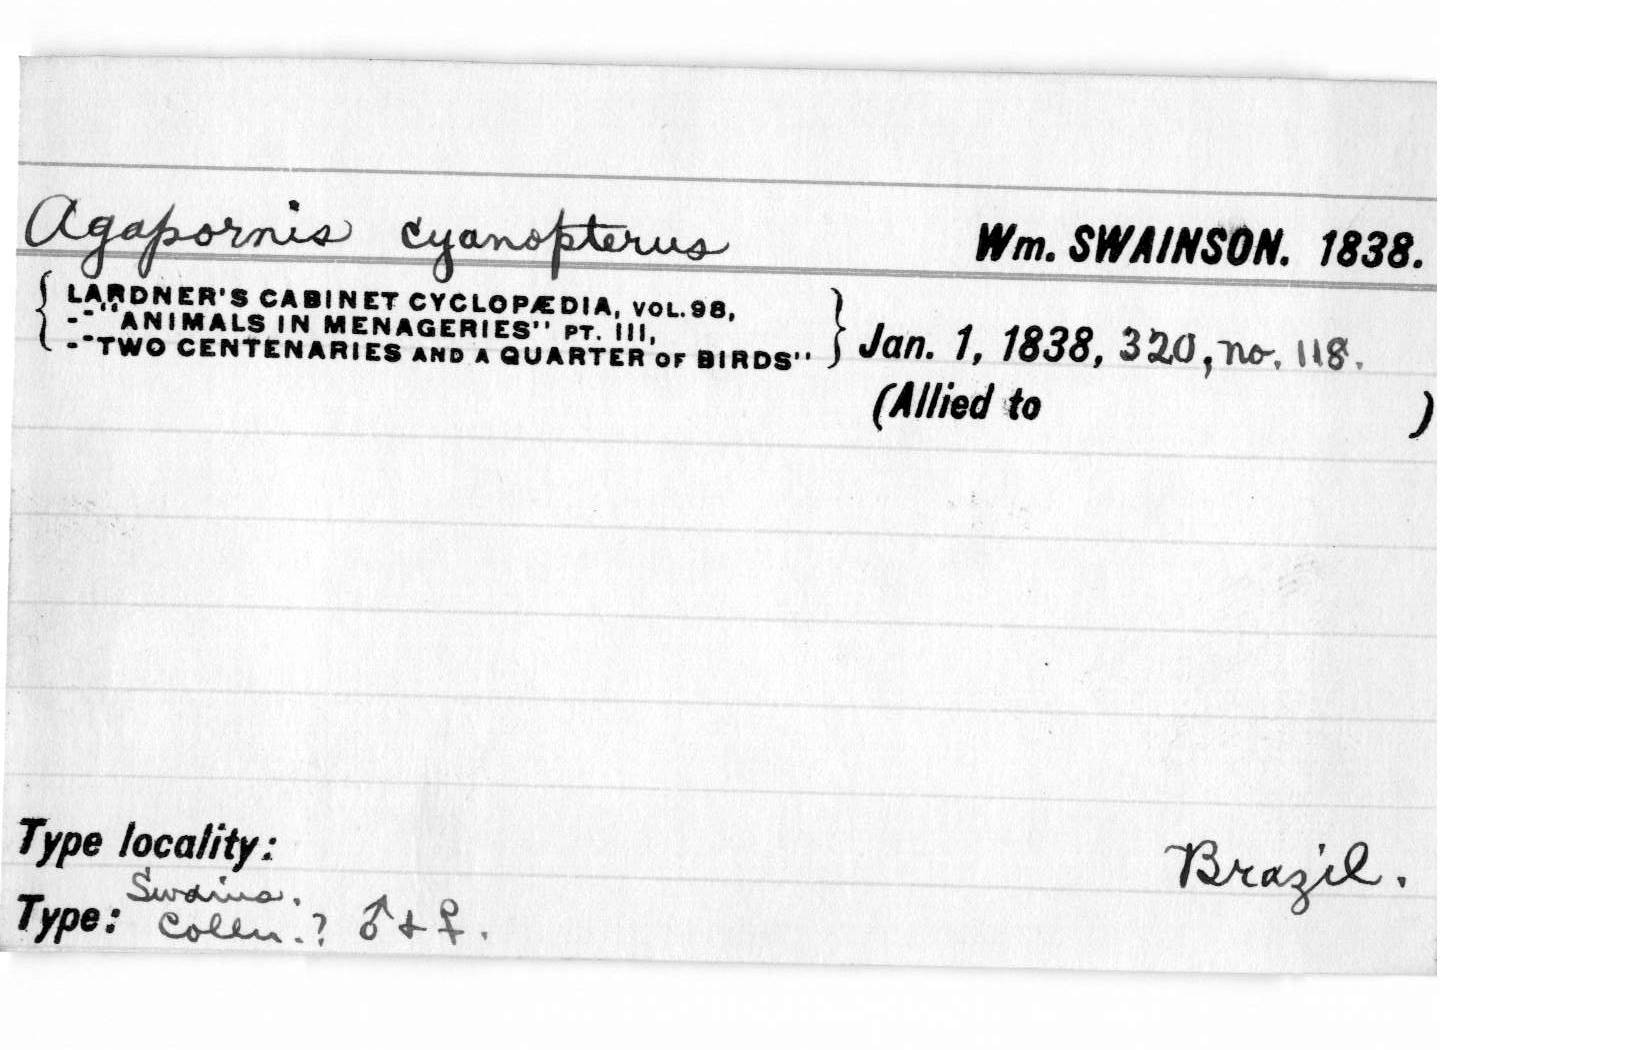 Agapornis cyanopterus Wm. SWAINSON. 1838.
LARDNER'S CABINET CYCLOPÆDIA, VOL. 98,
--"ANIMALS IN MENAGERIES" PT. III,
--"TWO CENTENARIES AND A QUARTER OF BIRDS"
Jan. 1, 1838, 320, no. 118.
(Allied to )
Type locality: Brazil.
Swains.
Type: Colln.? ♂ + ♀.